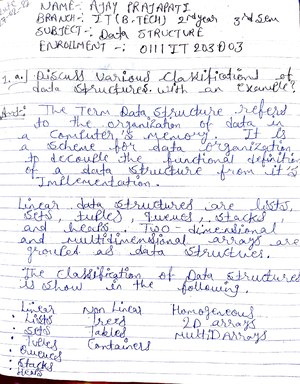 NAME:- AJAY PRAJAPATI
BRANCH:- IT (B.TECH) 2nd year 3rd Sem
SUBJECT:- DATA STRUCTURE
ENROLLMENT -: 0111IT203D03
1. a. Discuss Various Classifications of
data structures with an example?
Ans:- The Term Data Structure refers
to the organization of data in
a Computer's memory. It is
a scheme for data organization
to decouple the functional definition
of a data structure from it's
Implementation.
Linear data structures are lists,
sets, tuples, queues, stacks,
and heaps. Two-dimensional
and multidimensional arrays are
grouped as data structures.
The Classification of Data Structures
is show in the following.
Linear Non Linear Homogeneous
• Lists Trees 2D arrays
• Sets Tables MultiD Arrays
• Tuples Containers
• Queues
• Stacks
• Heaps